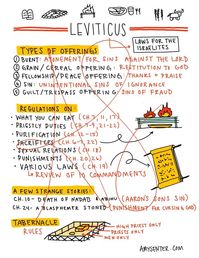 LEVITICUS
TYPES OF OFFERINGS
LAWS FOR THE
ISRAELITES
① BURNT: ATONEMENT FOR SINS AGAINST THE LORD
② GRAIN/CEREAL OFFERING: RESTITUTION TO GOD
③ FELLOWSHIP/PEACE OFFERING: THANKS + PRAISE
④ SIN: UNINTENTIONAL SINS OF IGNORANCE
⑤ GUILT/TRESPASS OFFERING: SINS OF FRAUD
REGULATIONS ON
• WHAT YOU CAN EAT (CH 3, 11, 17)
• PRIESTLY DUTIES
• PURIFICATION (CH 12-15)
• SACRIFICES
• SEXUAL RELATIONS (CH 18)
• PUNISHMENTS (CH 20, 24)
• VARIOUS LAWS (CH 19)
↳ REVIEW OF 10 COMMANDMENTS
A FEW STRANGE STORIES:
CH. 10 - DEATH OF NADAB + ABIHU (AARON'S SONS SIN)
CH. 24 - A BLASPHEMER STONED (PUNISHMENT FOR CURSING GOD)
TABERNACLE
RULES
HIGH PRIEST ONLY
PRIESTS ONLY
MEN ONLY
AMYSENTER.COM